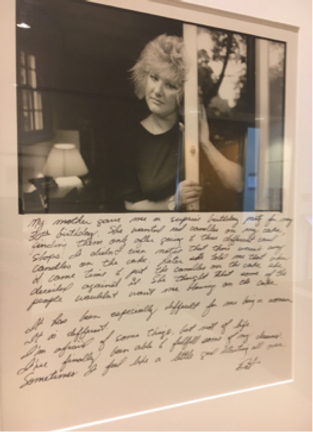 My mother gave me a surprise birthday party for my
birthday. She wanted red candles on my cake,
sending them out after going to three different card
shops. I didn't even notice that there weren't any
candles on the cake. Later she told me that when
it came time to put the candles on the cake she
decided against it. She thought that some of the
people wouldn't want me blowing on the cake.
It has been especially difficult for me being a woman.
It is different.
I'm afraid of some things, but not of life.
I've finally been able to fulfill some of my dreams.
Sometimes I feel like a little girl